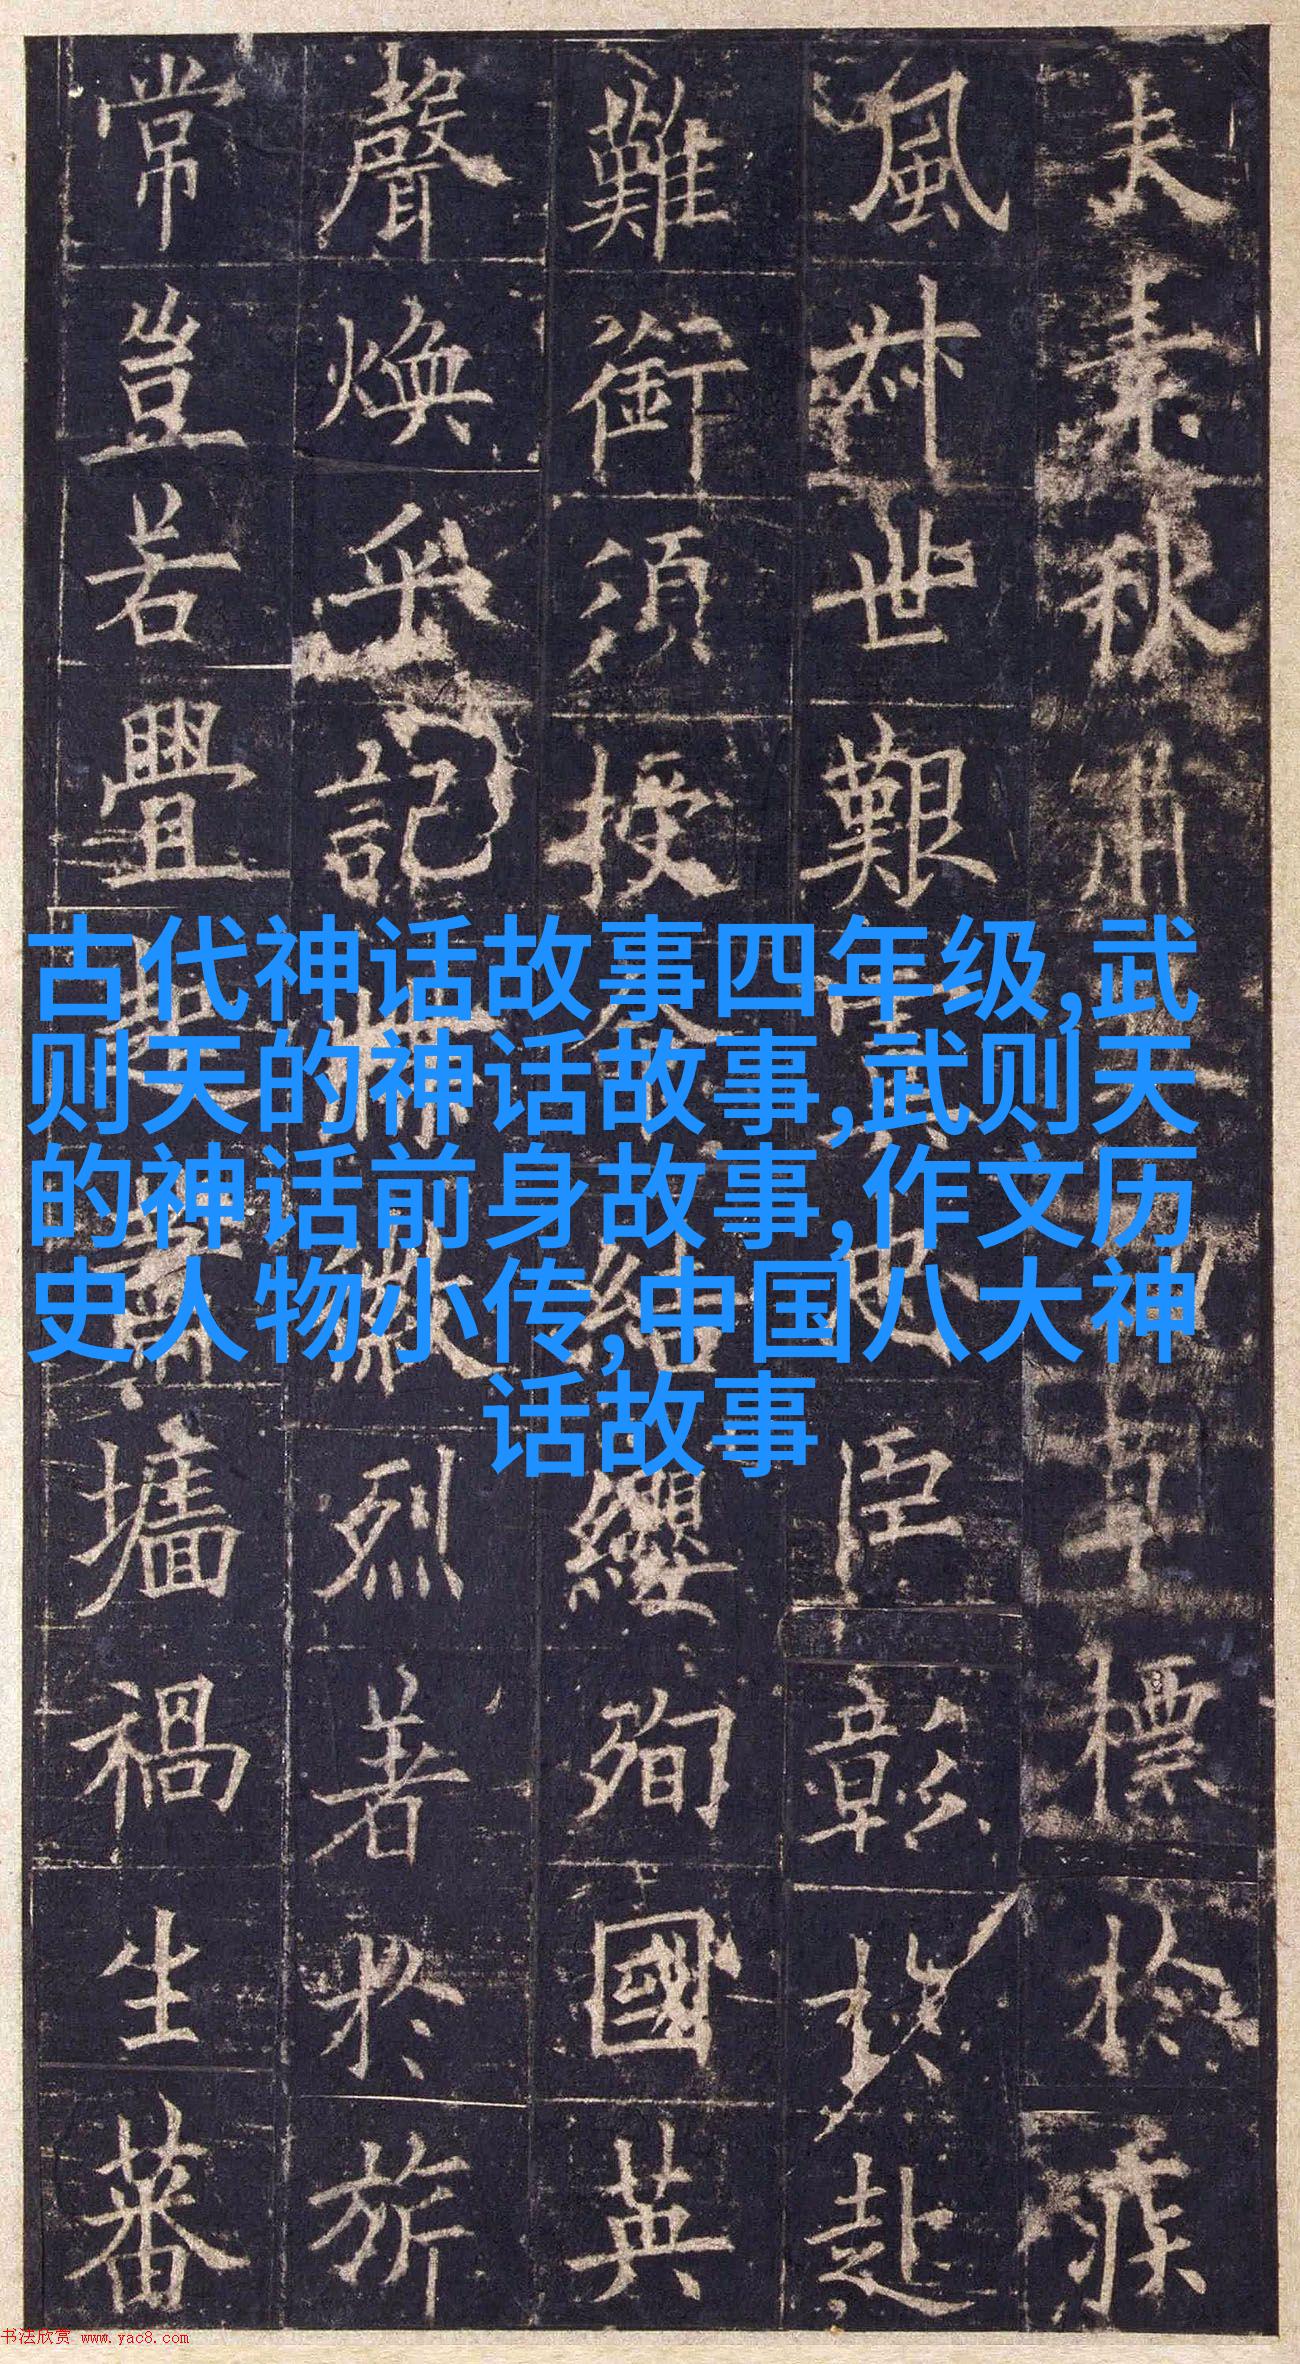 夫素秋肅草標於疾
風叔世艱忠臣彰於赴
難銜須授命結纓殉國英
聲煥乎記牒徽烈著於旂
常豈若舋起蕭墻禍生蕃
古代神话故事四年级,武
则天的神话故事,武则天
的神话前身故事,作文历
史人物小传,中国八大神
话故事
书法欣赏 www.yac8.com